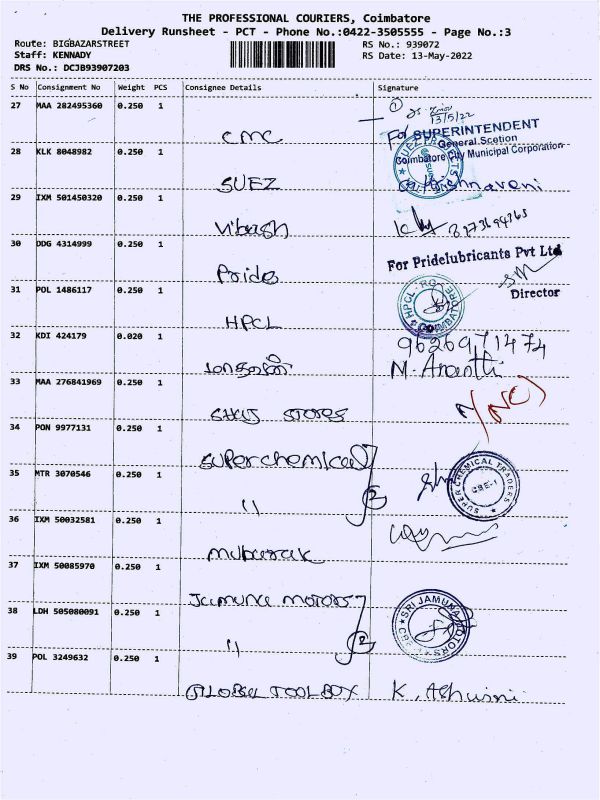 THE PROFESSIONAL COURIERS, Coimbatore
Delivery Runsheet - PCT - Phone No.:0422-3505555 - Page No.:3
Route: BIGBAZARSTREET RS No.: 939072
Staff: KENNADY RS Date: 13-May-2022
DRS No.: DCJB93907203
S No Consignment No Weight PCS Consignee Details Signature
27 MAA 282495360 0.250 1
13/5/22
CMC For SUPERINTENDENT
General Scetion
Coimbatore City Municipal Corporation
28 KLK 8048982 0.250 1
SUEZ Krishnaveni
29 IXM 501450320 0.250 1
Vibash
30 DDG 4314999 0.250 1
Pride For Pridelubricants Pvt Ltd
Director
31 POL 1486117 0.250 1
HPCL
32 KDI 424179 0.020 1
9626971474
M. Ananthi
33 MAA 276841969 0.250 1
STORES
34 PON 9977131 0.250 1
Super chemical
35 MTR 3070546 0.250 1
SUPER CHEMICAL TRADERS CBE-1
" 2
36 IXM 50032581 0.250 1
Mubarak
37 IXM 50085970 0.250 1
Jamuna motors
38 LDH 505080091 0.250 1
SRI JAMUNA MOTORS
" 2
39 POL 3249632 0.250 1
GLOBAL TOOL BOX K. Ashwini